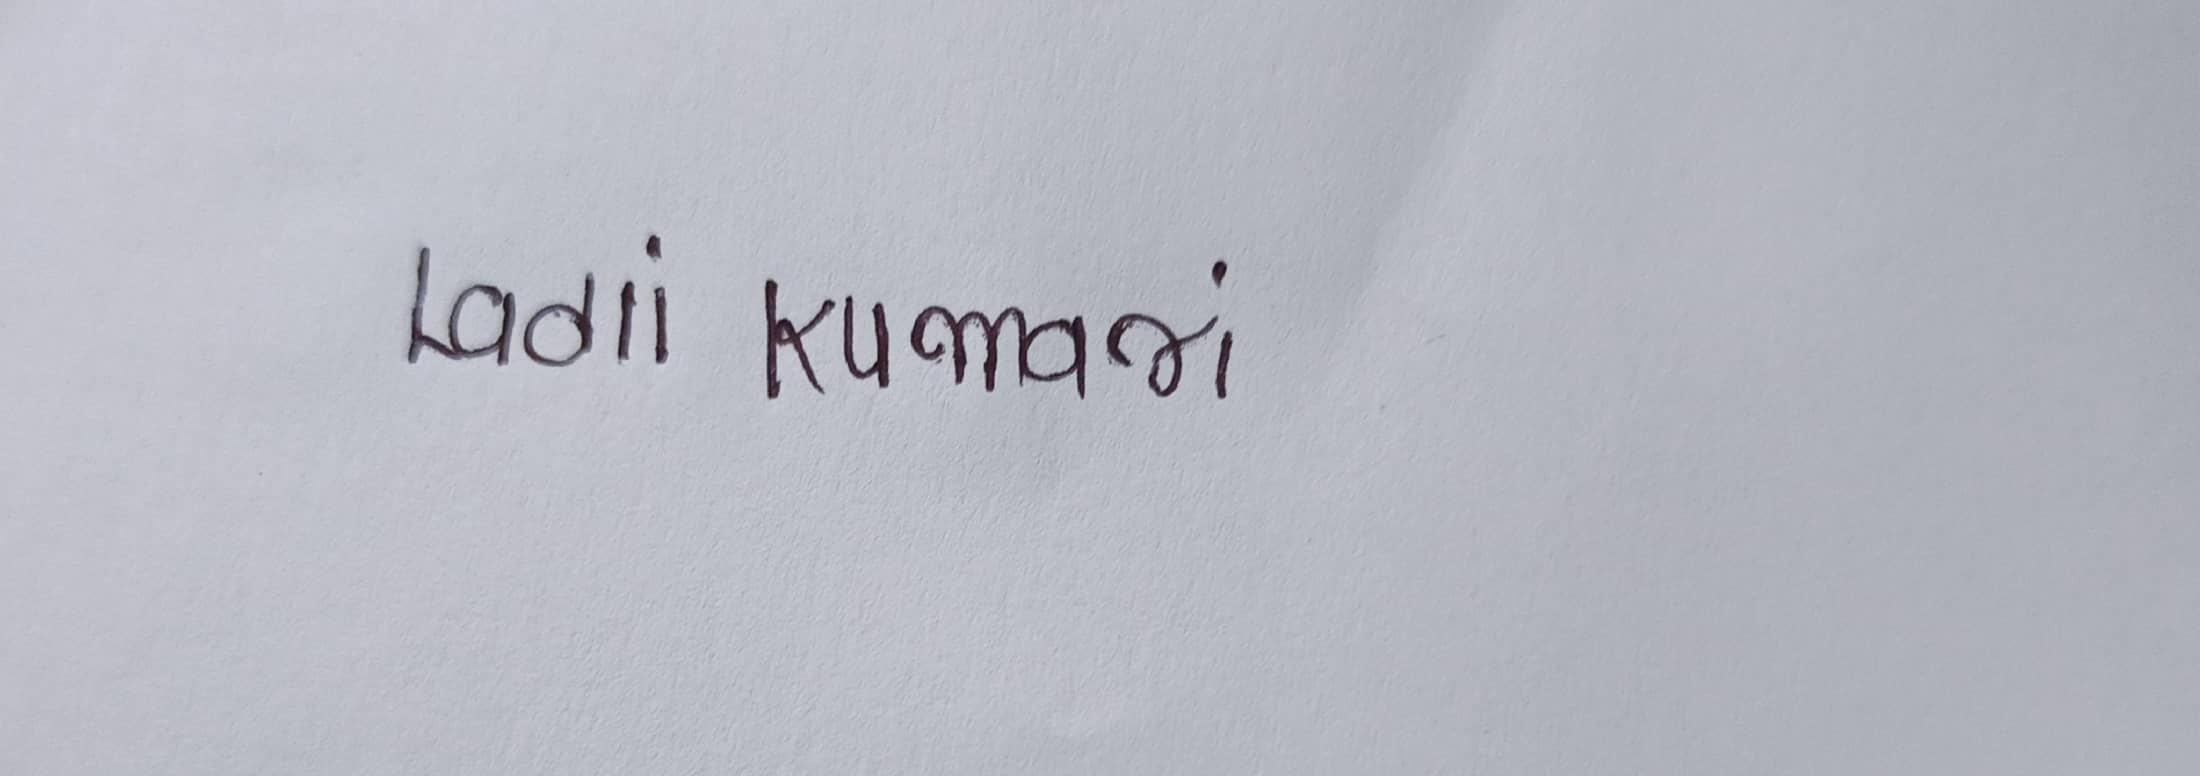 Ladli Kumari